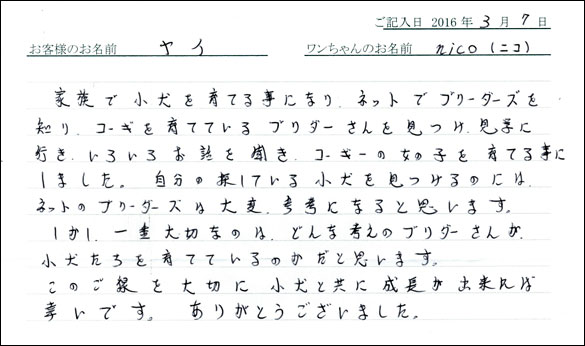 ご記入日 2016 年 3 月 7 日
お客様のお名前 ヤイ ワンちゃんのお名前 nico (ニコ)
家族で小犬を育てる事になり、ネットでブリーダーズを
知り、コーギを育てているブリダーさんを見つけ、見学に
行き、いろいろお話を聞き、コーギーの女の子を育てる事に
しました。自分の探している小犬を見つけるのには、
ネットのブリーダーズは大変、参考になると思います。
しかし、一番大切なのは、どんな考えのブリダーさんが、
小犬たちを育てているのかだと思います。
このご縁を大切に小犬と共に成長が出来れば
幸いです。ありがとうございました。